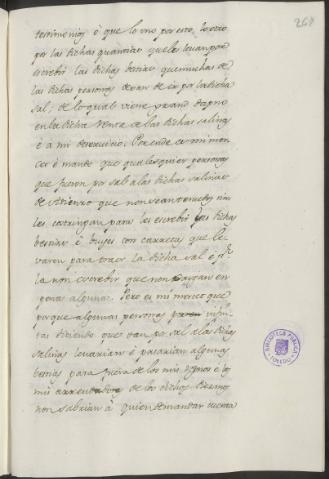 260
testimonios é que lo uno por esto, lo otro
por las dichas quantias que les levan por
escrebir las dichas bestias que muchas de
las dichas personas dexan de ir por la dicha
sal: de lo qual viene grand dapno
en la dicha Renta de las dichas salinas
é a mi deservicio: Por ende es mi mer
ced é mando que qualesquier personas
que fueren por sal a las dichas salinas
de Atienza que non sean tenudos nin
les costringan para les escrebir las dichas
bestias é bueyes con carretas que le
varen para traer la dicha sal é por
la non escrebir que non cayan en
penas algunas. Pero es mi merced que
porque algunas personas
diciendo que van por sal a las dichas
salinas levarian é pasarian algunas
bestias para fuera de los mis regnos é los
mis arrendadores de los diezmos
non sabrian á quien demandar cuenta
BIBLIOTECA PUBLICA
TOLEDO